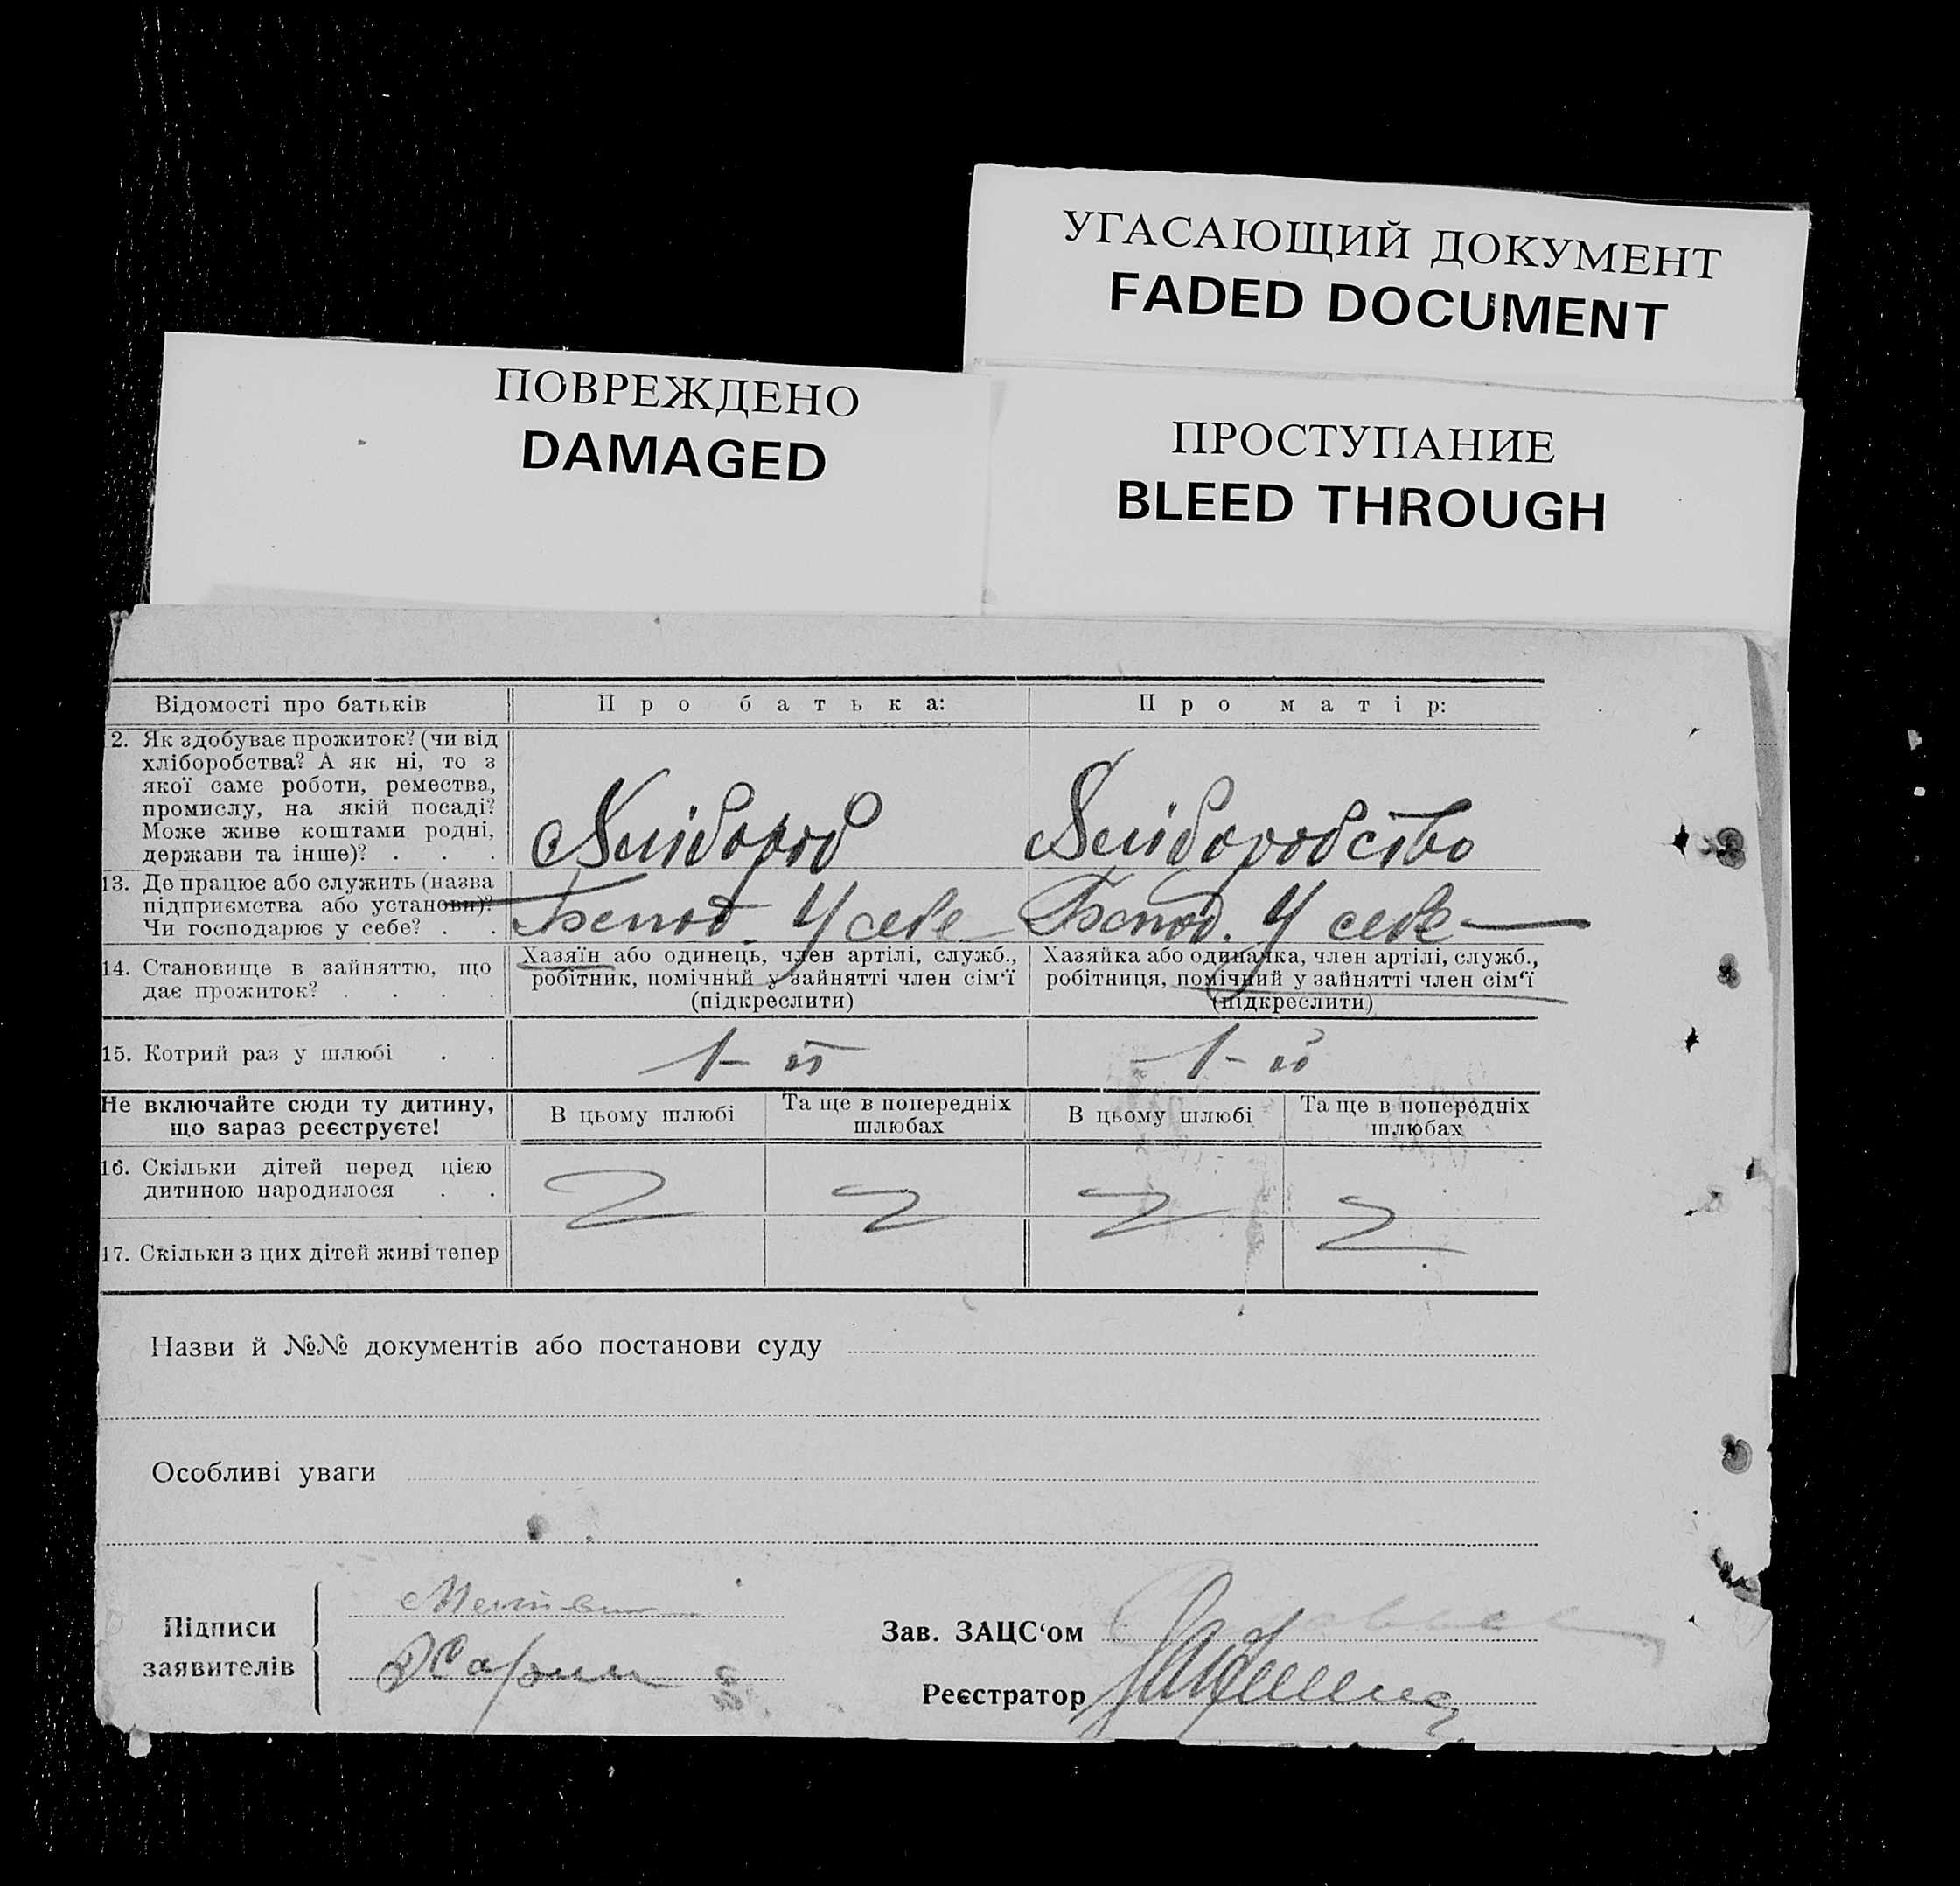 УГАСАЮЩИЙ ДОКУМЕНТ
FADED DOCUMENT
ПОВРЕЖДЕНО
DAMAGED
ПРОСТУПАНИЕ
BLEED THROUGH
Відомості про батьків
Про батька:
Про матір:
2. Як здобуває прожиток? (чи від
хліборобства? А як ні, то з
якої саме роботи, ремества,
промислу, на якій посаді?
Може живе коштами родні,
держави та інше)? . . .
Хлібороб
Хліборобство
13. Де працює або служить (назва
підприємства або установи)?
Чи господарює у себе? . .
У себе
У себе
14. Становище в зайняттю, що
дає прожиток? . . . .
Хазяїн або одинець, член артілі, служб.,
робітник, помічний у зайнятті член сім‘ї
(підкреслити)
Хазяйка або одиначка, член артілі, служб.,
робітниця, помічний у зайнятті член сім‘ї
(підкреслити)
15. Котрий раз у шлюбі . .
1-й
1-й
Не включайте сюди ту дитину,
що зараз реєструєте!
В цьому шлюбі
Та ще в попередніх
шлюбах
В цьому шлюбі
Та ще в попередніх
шлюбах
16. Скільки дітей перед цією
дитиною народилося . .
17. Скільки з цих дітей живі тепер
Назви й №№ документів або постанови суду
Особливі уваги
Підписи
заявителів
Зав. ЗАЦС‘ом
Реєстратор